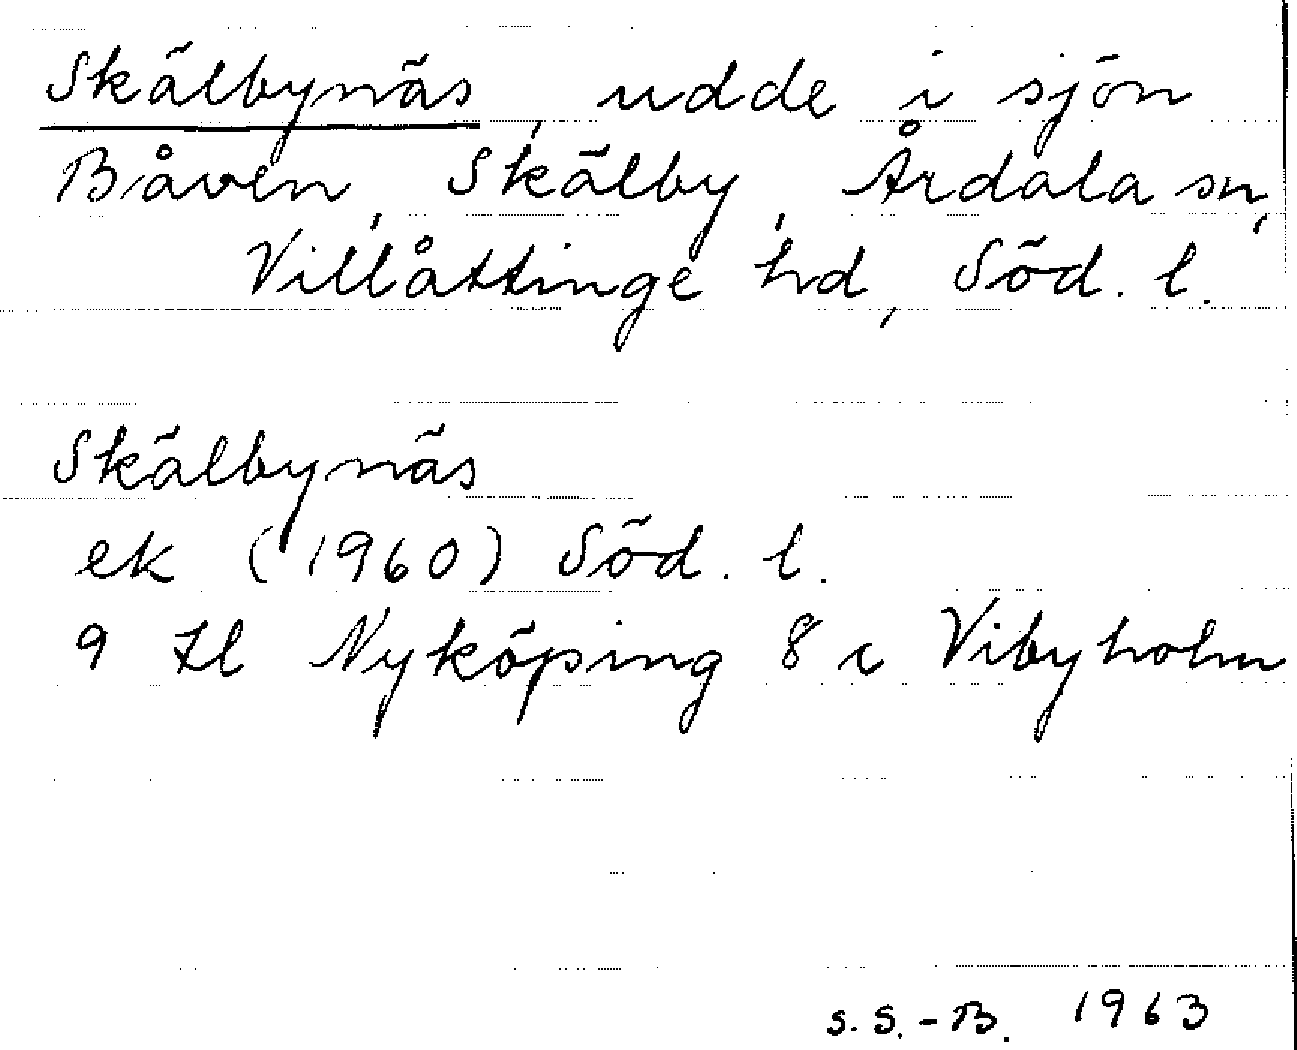 Skälbynäs, udde i sjön
Båven, Skälby, Årdala sn,
Villåttinge hd, Söd. l.
Skälbynäs
ek (1960) Söd. l.
9 H Nyköping 8 c Vibyholm
S. S.-B. 1963